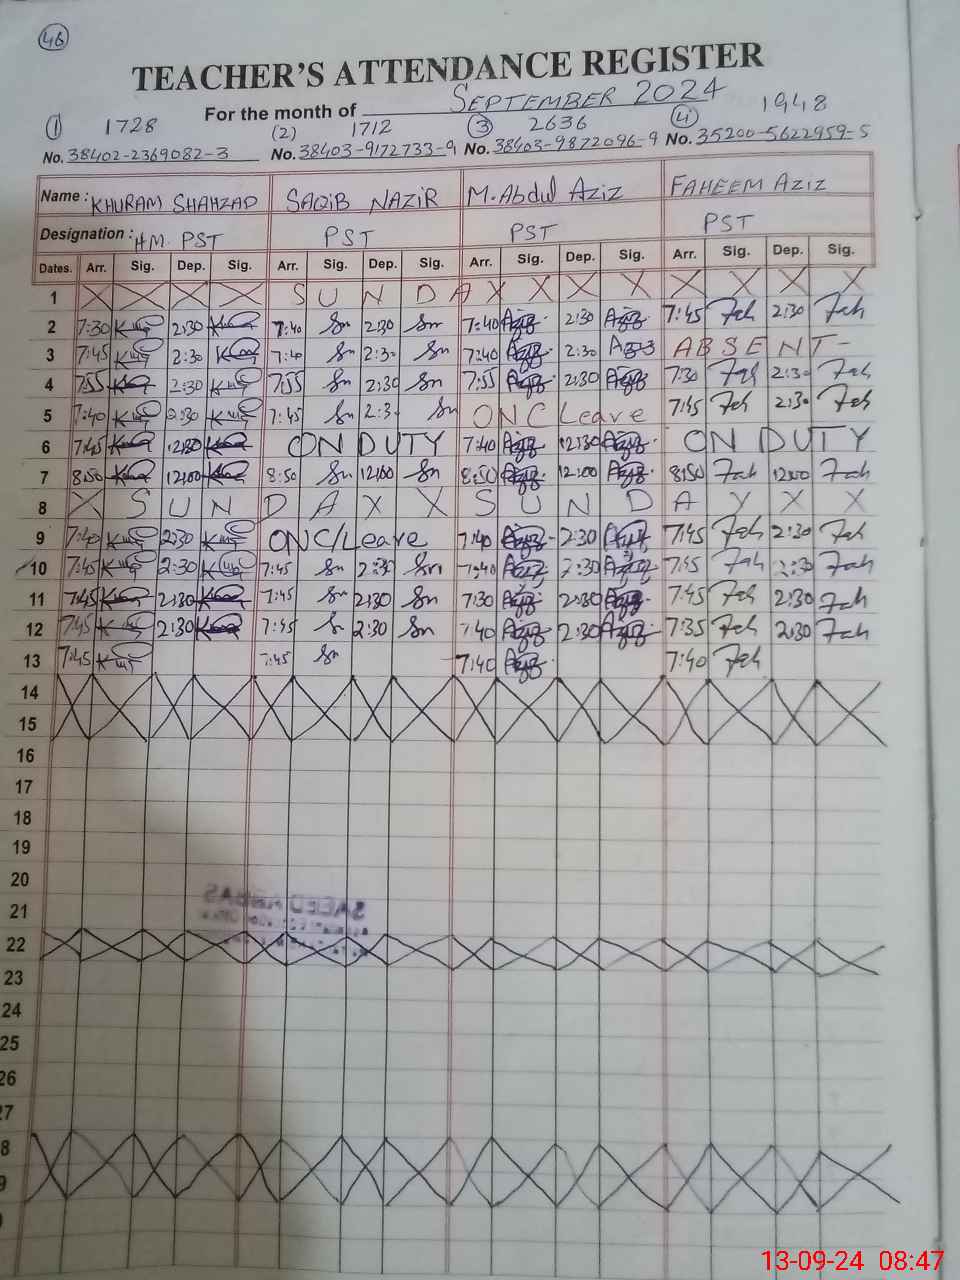 46
TEACHER'S ATTENDANCE REGISTER
For the month of SEPTEMBER 2024
1 1728 (2) 1712 3 2636 4 1948
No. 38402-2369082-3 No. 38403-9172733-9 No. 38403-9872096-9 No. 35200-5622959-5
Name : KHURAM SHAHZAD SAQIB NAZIR M. Abdul Aziz FAHEEM AZIZ
Designation : HM. PST PST PST PST
Dates. Arr. Sig. Dep. Sig. Arr. Sig. Dep. Sig. Arr. Sig. Dep. Sig. Arr. Sig. Dep. Sig.
1 X X X X S U N D A X X X X X X X X
2 7:30 2:30 7:40 Sn 2:30 Sn 7:40 Aziz 2:30 Aziz 7:45 Fah 2:30 Fah
3 7:45 2:30 7:40 Sn 2:30 Sn 7:40 Aziz 2:30 Aziz ABSENT-
4 7:55 2:30 7:55 Sn 2:30 Sn 7:55 Aziz 2:30 Aziz 7:30 Fah 2:30 Fah
5 7:40 2:30 7:45 Sn 2:3 Sn ON C Leave 7:45 Fah 2:30 Fah
6 7:45 12:30 ON DUTY 7:40 Aziz 12:30 Aziz ON DUTY
7 8:50 12:00 8:50 Sn 12:00 Sn 8:50 Aziz 12:00 Aziz 8:50 Fah 12:00 Fah
8 X S U N D A X X S U N D A Y X X
9 7:40 2:30 ONC/Leave 7:40 Aziz 2:30 Aziz 7:45 Fah 2:30 Fah
10 7:45 2:30 7:45 Sn 2:30 Sn 7:40 Aziz 2:30 Aziz 7:45 Fah 2:30 Fah
11 7:45 2:30 7:45 Sn 2:30 Sn 7:30 Aziz 2:30 Aziz 7:45 Fah 2:30 Fah
12 7:45 2:30 7:45 S 2:30 Sn 7:40 Aziz 2:30 Aziz 7:35 Fah 2:30 Fah
13 7:45 7:45 Sn 7:40 Aziz 7:40 Fah
14
15
16
17
18
19
20
21
SAEED ABBAS
22
23
24
25
26
27
8
9
13-09-24 08:47